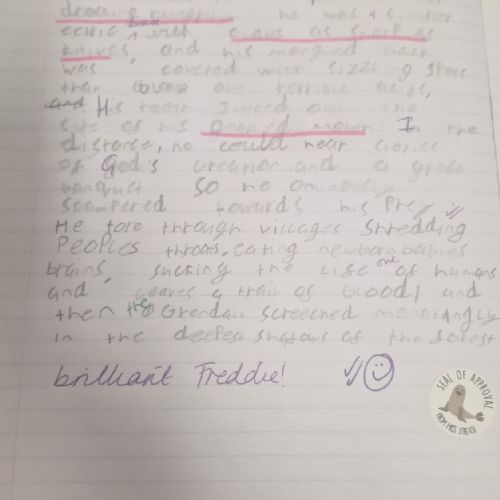 he was a sinister
with claws as sharp as
knives, and his mangled back
was covered with sizzling spots
that
His teeth jutted out the
of his mouth In the
distance, he could hear stories
of God's creation and a great
banquet so he ominously
scampered towards his Prey
He tore through villages shredding
Peoples throats, eating newborn babies
brains, sucking the life out of humans
and leaves a trail of blood, and
then the Grendal screeched menacingly
in the deepest shadows of the forest
brilliant Freddie!
SEAL OF APPROVAL
FROM MISS STRETCH